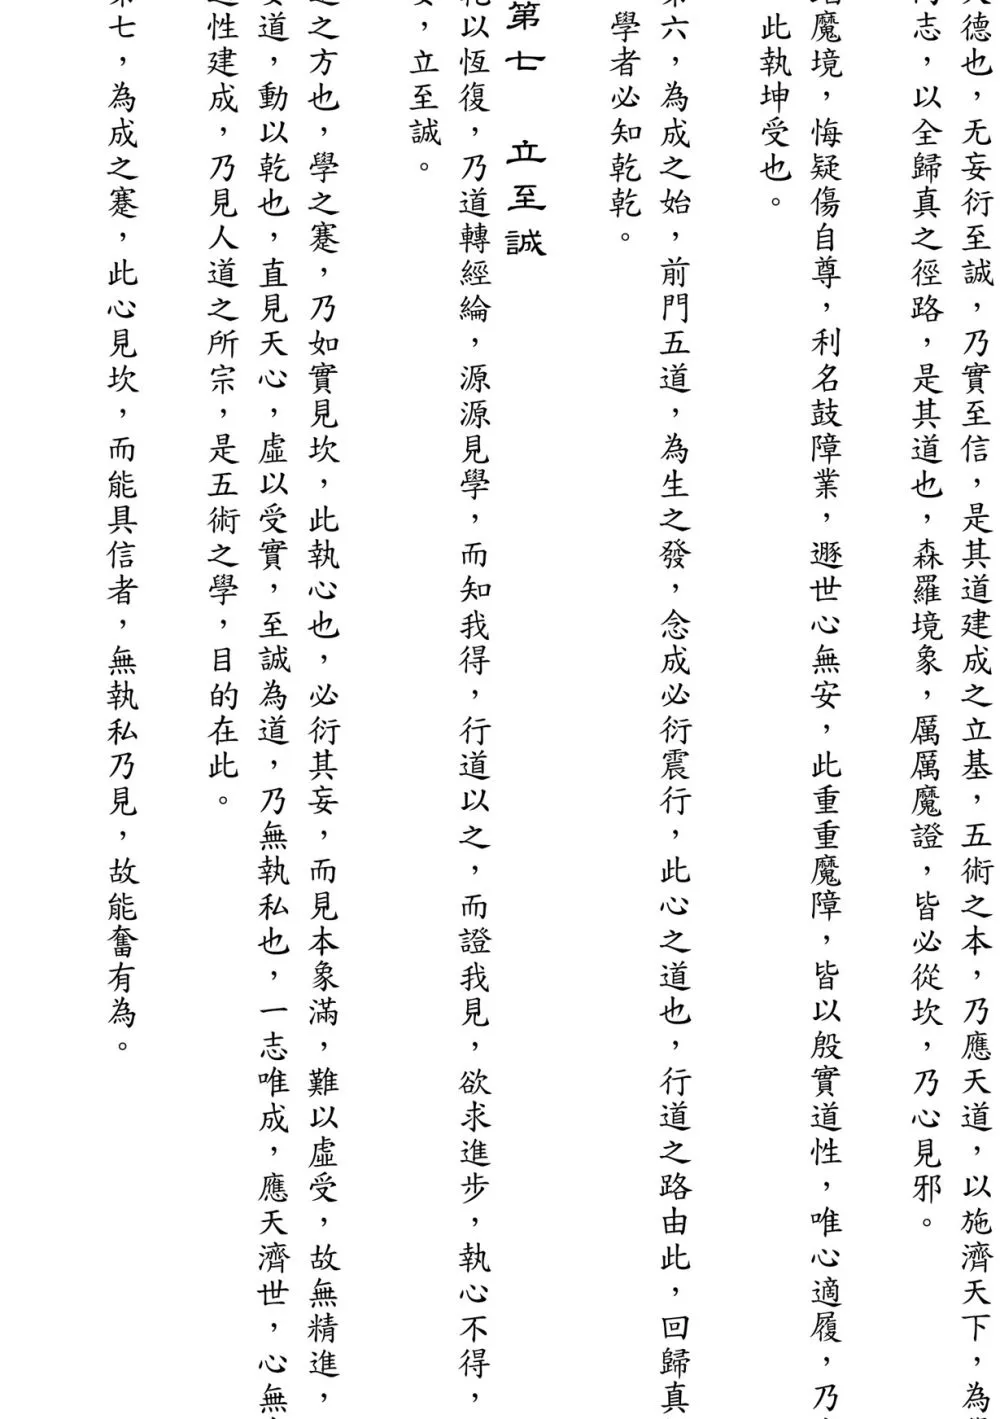 德也，无妄衍至誠，乃實至信，是其道建成之立基，五術之本，乃應天道，以施濟天下，為
志，以全歸真之徑路，是其道也，森羅境象，厲厲魔證，皆必從坎，乃心見邪。
魔境，悔疑傷自尊，利名鼓障業，遯世心無安，此重重魔障，皆以殷實道性，唯心適履，乃
此執坤受也。
第六，為成之始，前門五道，為生之發，念成必衍震行，此心之道也，行道之路由此，回歸真
學者必知乾乾。
第七　立至誠
以恆復，乃道轉經綸，源源見學，而知我得，行道以之，而證我見，欲求進步，執心不得，
，立至誠。
之方也，學之蹇，乃如實見坎，此執心也，必衍其妄，而見本象滿，難以虛受，故無精進，
道，動以乾也，直見天心，虛以受實，至誠為道，乃無執私也，一志唯成，應天濟世，心無
性建成，乃見人道之所宗，是五術之學，目的在此。
第七，為成之蹇，此心見坎，而能具信者，無執私乃見，故能奮有為。